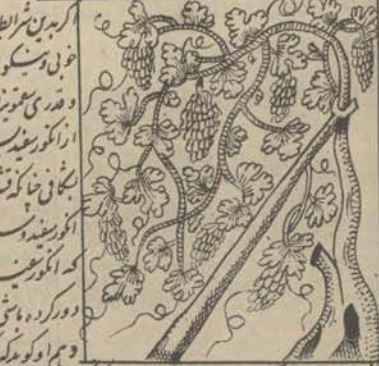 اگر بدین شرائط
خوبی و نیکو
و قدری سقمونیا
از انگور سفید
شکافی چنانکه
انگور سفید و
که انگور سفید
دور کرده باشی
و هم او گوید که